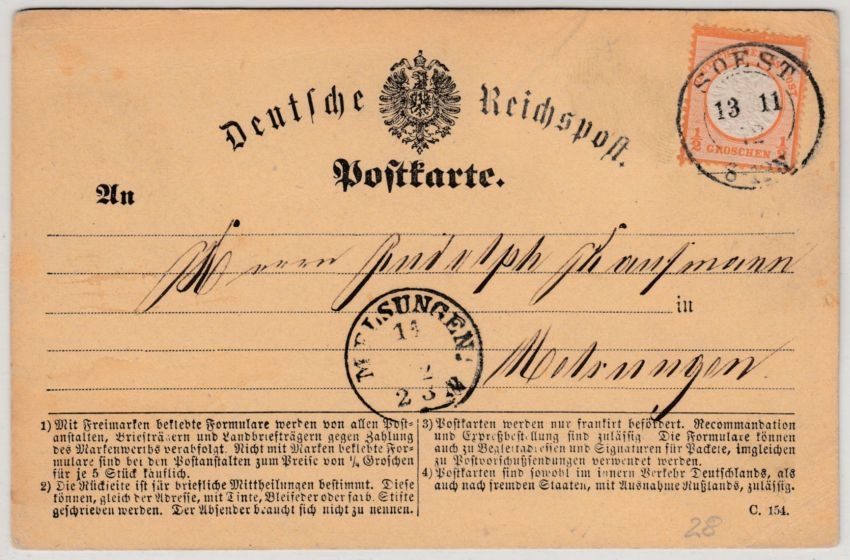 Deutsche Reichspost.
Postkarte.
SOEST
13 11
72
8
1/2 GROSCHEN 1/2
An
Herrn Rudolph Kaufmann
in
Melsungen
MELSUNGEN
14
2
2 3 N
1) Mit Freimarken beklebte Formulare werden von allen Post-
anstalten, Briefträgern und Landbriefträgern gegen Zahlung
des Markenwerths verabfolgt. Nicht mit Marken beklebte For-
mulare sind bei den Postanstalten zum Preise von ¼ Groschen
für je 5 Stück käuflich.
2) Die Rückseite ist für briefliche Mittheilungen bestimmt. Diese
können, gleich der Adresse, mit Tinte, Bleifeder oder farb. Stifte
geschrieben werden. Der Absender braucht sich nicht zu nennen.
3) Postkarten werden nur frankirt befördert. Recommandation
und Expreßbestellung sind zulässig. Die Formulare können
auch zu Begleitadressen und Signaturen für Packete, imgleichen
zu Postvorschußsendungen verwendet werden.
4) Postkarten sind sowohl im innern Verkehr Deutschlands, als
auch nach fremden Staaten, mit Ausnahme Rußlands, zulässig.
C. 154.
28